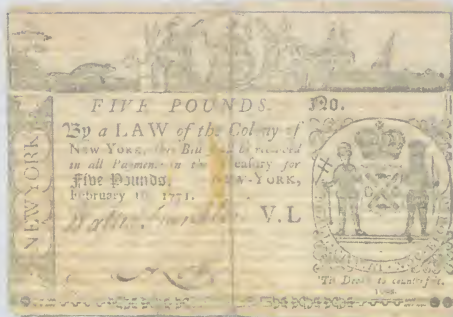 FIVE POUNDS. No.
By a LAW of the Colony of
NEW YORK, this Bill shall be received
in all Payments in the Treasury for
Five Pounds. NEW-YORK,
February 16, 1771.
V.L
NEW YORK
'Tis Death to counterfeit.